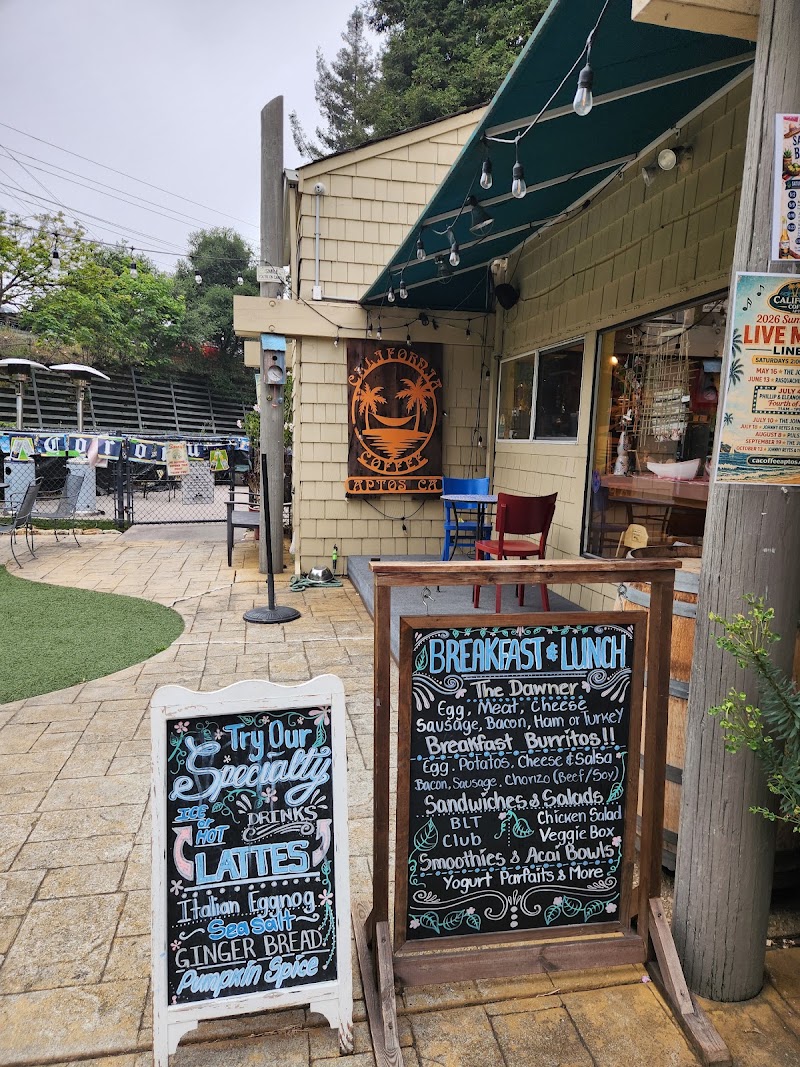 CALIFORNIA
COFFEE
APTOS CA
CALIF
2026 Sum
LIVE M
LINE
SATURDAYS 2:0
MAY 16 ★ THE JO
JUNE 13 ★
JULY 4
PHILLIP & ELEANO
Fourth of
JULY 10 ★ THE JON
JULY 18 ★ JOHNNY REYES &
AUGUST 8 ★
SEPTEMBER 19 ★ THE JO
OCTOBER 12 ★ JOHNNY REYES &
cacoffeeaptos.co
Try Our
Specialty
ICE or HOT
DRINKS
LATTES
Italian Eggnog
Sea Salt
GINGER BREAD
Pumpkin Spice
BREAKFAST & LUNCH
The Dawner
Egg, Meat, Cheese
Sausage, Bacon, Ham or Turkey
Breakfast Burritos!!
Egg, Potatos, Cheese & Salsa
Bacon, Sausage, Chorizo (Beef/Soy)
Sandwiches & Salads
BLT Chicken Salad
Club Veggie Box
Smoothies & Acai Bowls
Yogurt Parfaits & More